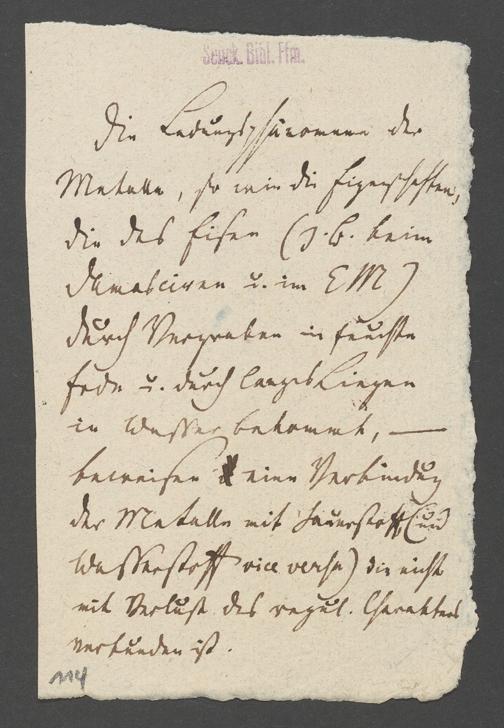 Senck. Bibl. Ffm.
Die Ladungsphänomene der
Metalle, so wie die Eigenschaften,
die das Eisen (z.B. beim
Damasciren u. im EM)
durch Vergraben in feuchte
Erde u. durch langes Liegen
in Wasser bekommt, —
beweisen eine Verbindung
der Metalle mit Sauerstoff (und
Wasserstoff vice versa) die nicht
mit Verlust des regul. Charakters
verbunden ist.
114